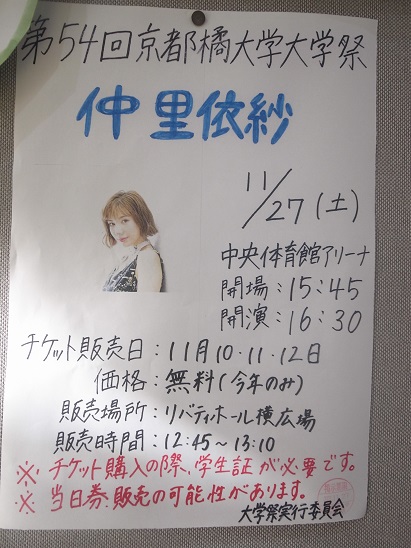 第54回京都橘大学大学祭
仲里依紗
11/27(土)
中央体育館アリーナ
開場:15:45
開演:16:30
チケット販売日:11月10·11·12日
価格:無料(今年のみ)
販売場所:リバティホール横広場
販売時間:12:45~13:10
※ チケット購入の際、学生証が必要です。
※ 当日券販売の可能性があります。
大学祭実行委員会